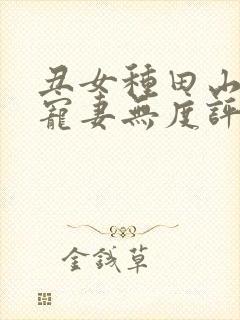 丑女種田山
寵妻無度評
金錢草